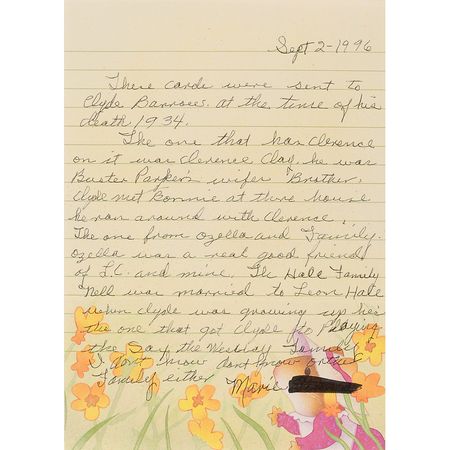 Sept 2-1996
These cards were sent to
Clyde Barrows. at the time of his
death, 1934.
The one that has Clerence
on it was Clerence Clay, he was
Buster Parker's wifes Brother.
Clyde met Bonnie at there house
he ran around with Clerence.
The one from Ozella and Family.
Ozella was a real good friend
of L.C. and mine. The Hale Family
Nell was married to Leon Hale
when Clyde was growing up he's
the one that got Clyde to Playing
the Sax, the Family
I don't know dont know
Family either Marie